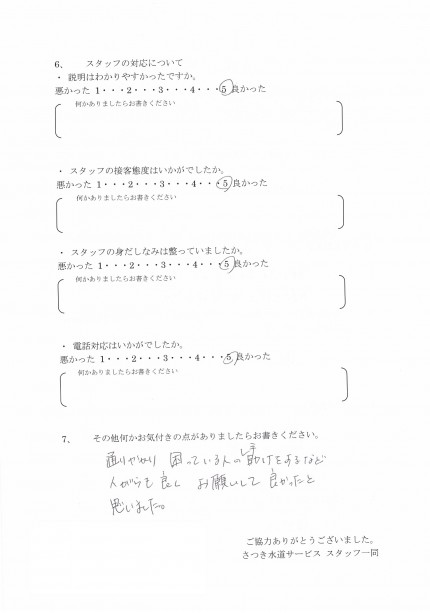 6、 スタッフの対応について
・ 説明はわかりやすかったですか。
悪かった 1・・・2・・・3・・・4・・・5 良かった
何かありましたらお書きください
・ スタッフの接客態度はいかがでしたか。
悪かった 1・・・2・・・3・・・4・・・5 良かった
何かありましたらお書きください
・ スタッフの身だしなみは整っていましたか。
悪かった 1・・・2・・・3・・・4・・・5 良かった
何かありましたらお書きください
・ 電話対応はいかがでしたか。
悪かった 1・・・2・・・3・・・4・・・5 良かった
何かありましたらお書きください
7、 その他何かお気付きの点がありましたらお書きください。
通りがかり 困っている人の手助けをするなど
人がらも良く お願いして 良かったと
思いました。
ご協力ありがとうございました。
さつき水道サービス スタッフ一同